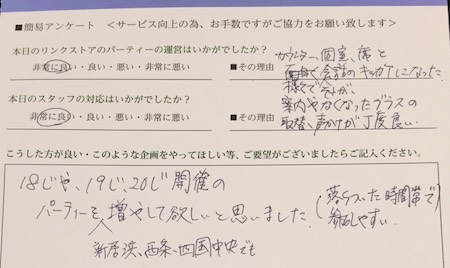 ■簡易アンケート <サービス向上の為、お手数ですがご協力をお願い致します>
本日のリンクストアのパーティーの運営はいかがでしたか?
非常に良い・良い・悪い・非常に悪い
■その理由
カウンター、個室、席と
様々で会話のキッカケになった。
様々で
本日のスタッフの対応はいかがでしたか?
非常に良い・良い・悪い・非常に悪い
■その理由
案内やなくなったグラスの
取替、声かけが丁度良い。
こうした方が良い・このような企画をやってほしい等、ご要望がございましたらご記入ください。
18じや、19じ、20じ開催の
パーティーを増やして欲しいと思いました。
(落ちついた時間帯で
参加しやすい。)
新居浜、西条、四国中央でも